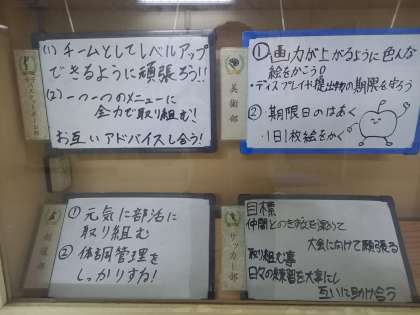 (1) チームとしてレベルアップ
できるように頑張ろう!!
(2) 一つ一つのメニューに
全力で取り組む!
お互いアドバイスし合う!
① 画力が上がるように色んな
絵をかこう!
・ディスプレイや提出物の期限を守ろう
② 期限日のはあく
・1日1枚絵をかく
美術部
① 元気に部活に
取り組む
② 体調管理を
しっかりする!
剣道部
目標
仲間とのきずなを深めて
大会に向けて頑張る
取り組む事
日々の練習を大事にし
互いに助け合う
サッカー部